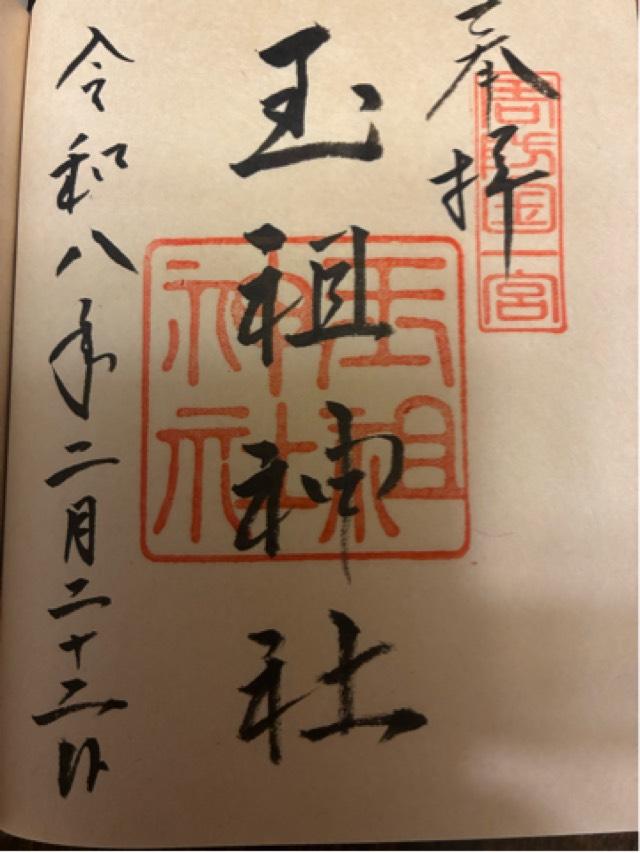 奉拝
周防国一宮
玉祖神社
玉祖神社
令和八年二月二十二日